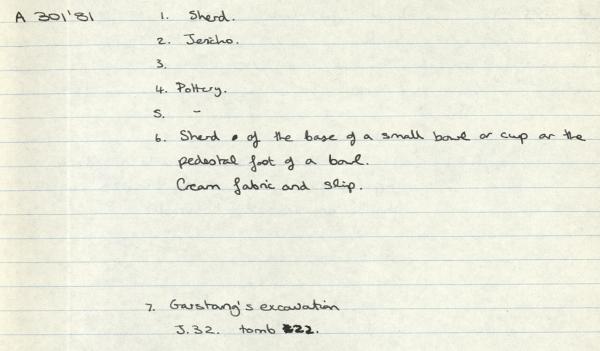 A 301'81
1. Sherd.
2. Jericho.
3.
4. Pottery.
5. -
6. Sherd of the base of a small bowl or cup or the
pedestal foot of a bowl.
Cream fabric and slip.
7. Garstang's excavation
J.32. tomb 22.